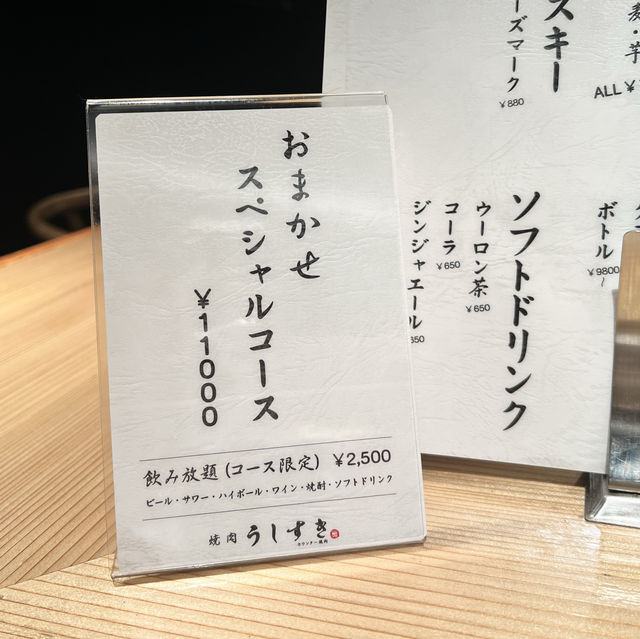 おまかせ
スペシャルコース
￥11000
飲み放題(コース限定) ￥2,500
ビール・サワー・ハイボール・ワイン・焼酎・ソフトドリンク
焼肉 うしすき
カウンター焼肉
スキー
ーズマーク
¥880
ALL¥
ボトル
¥9800〜
ソフトドリンク
ウーロン茶
¥650
コーラ
¥650
ジンジャエール
650